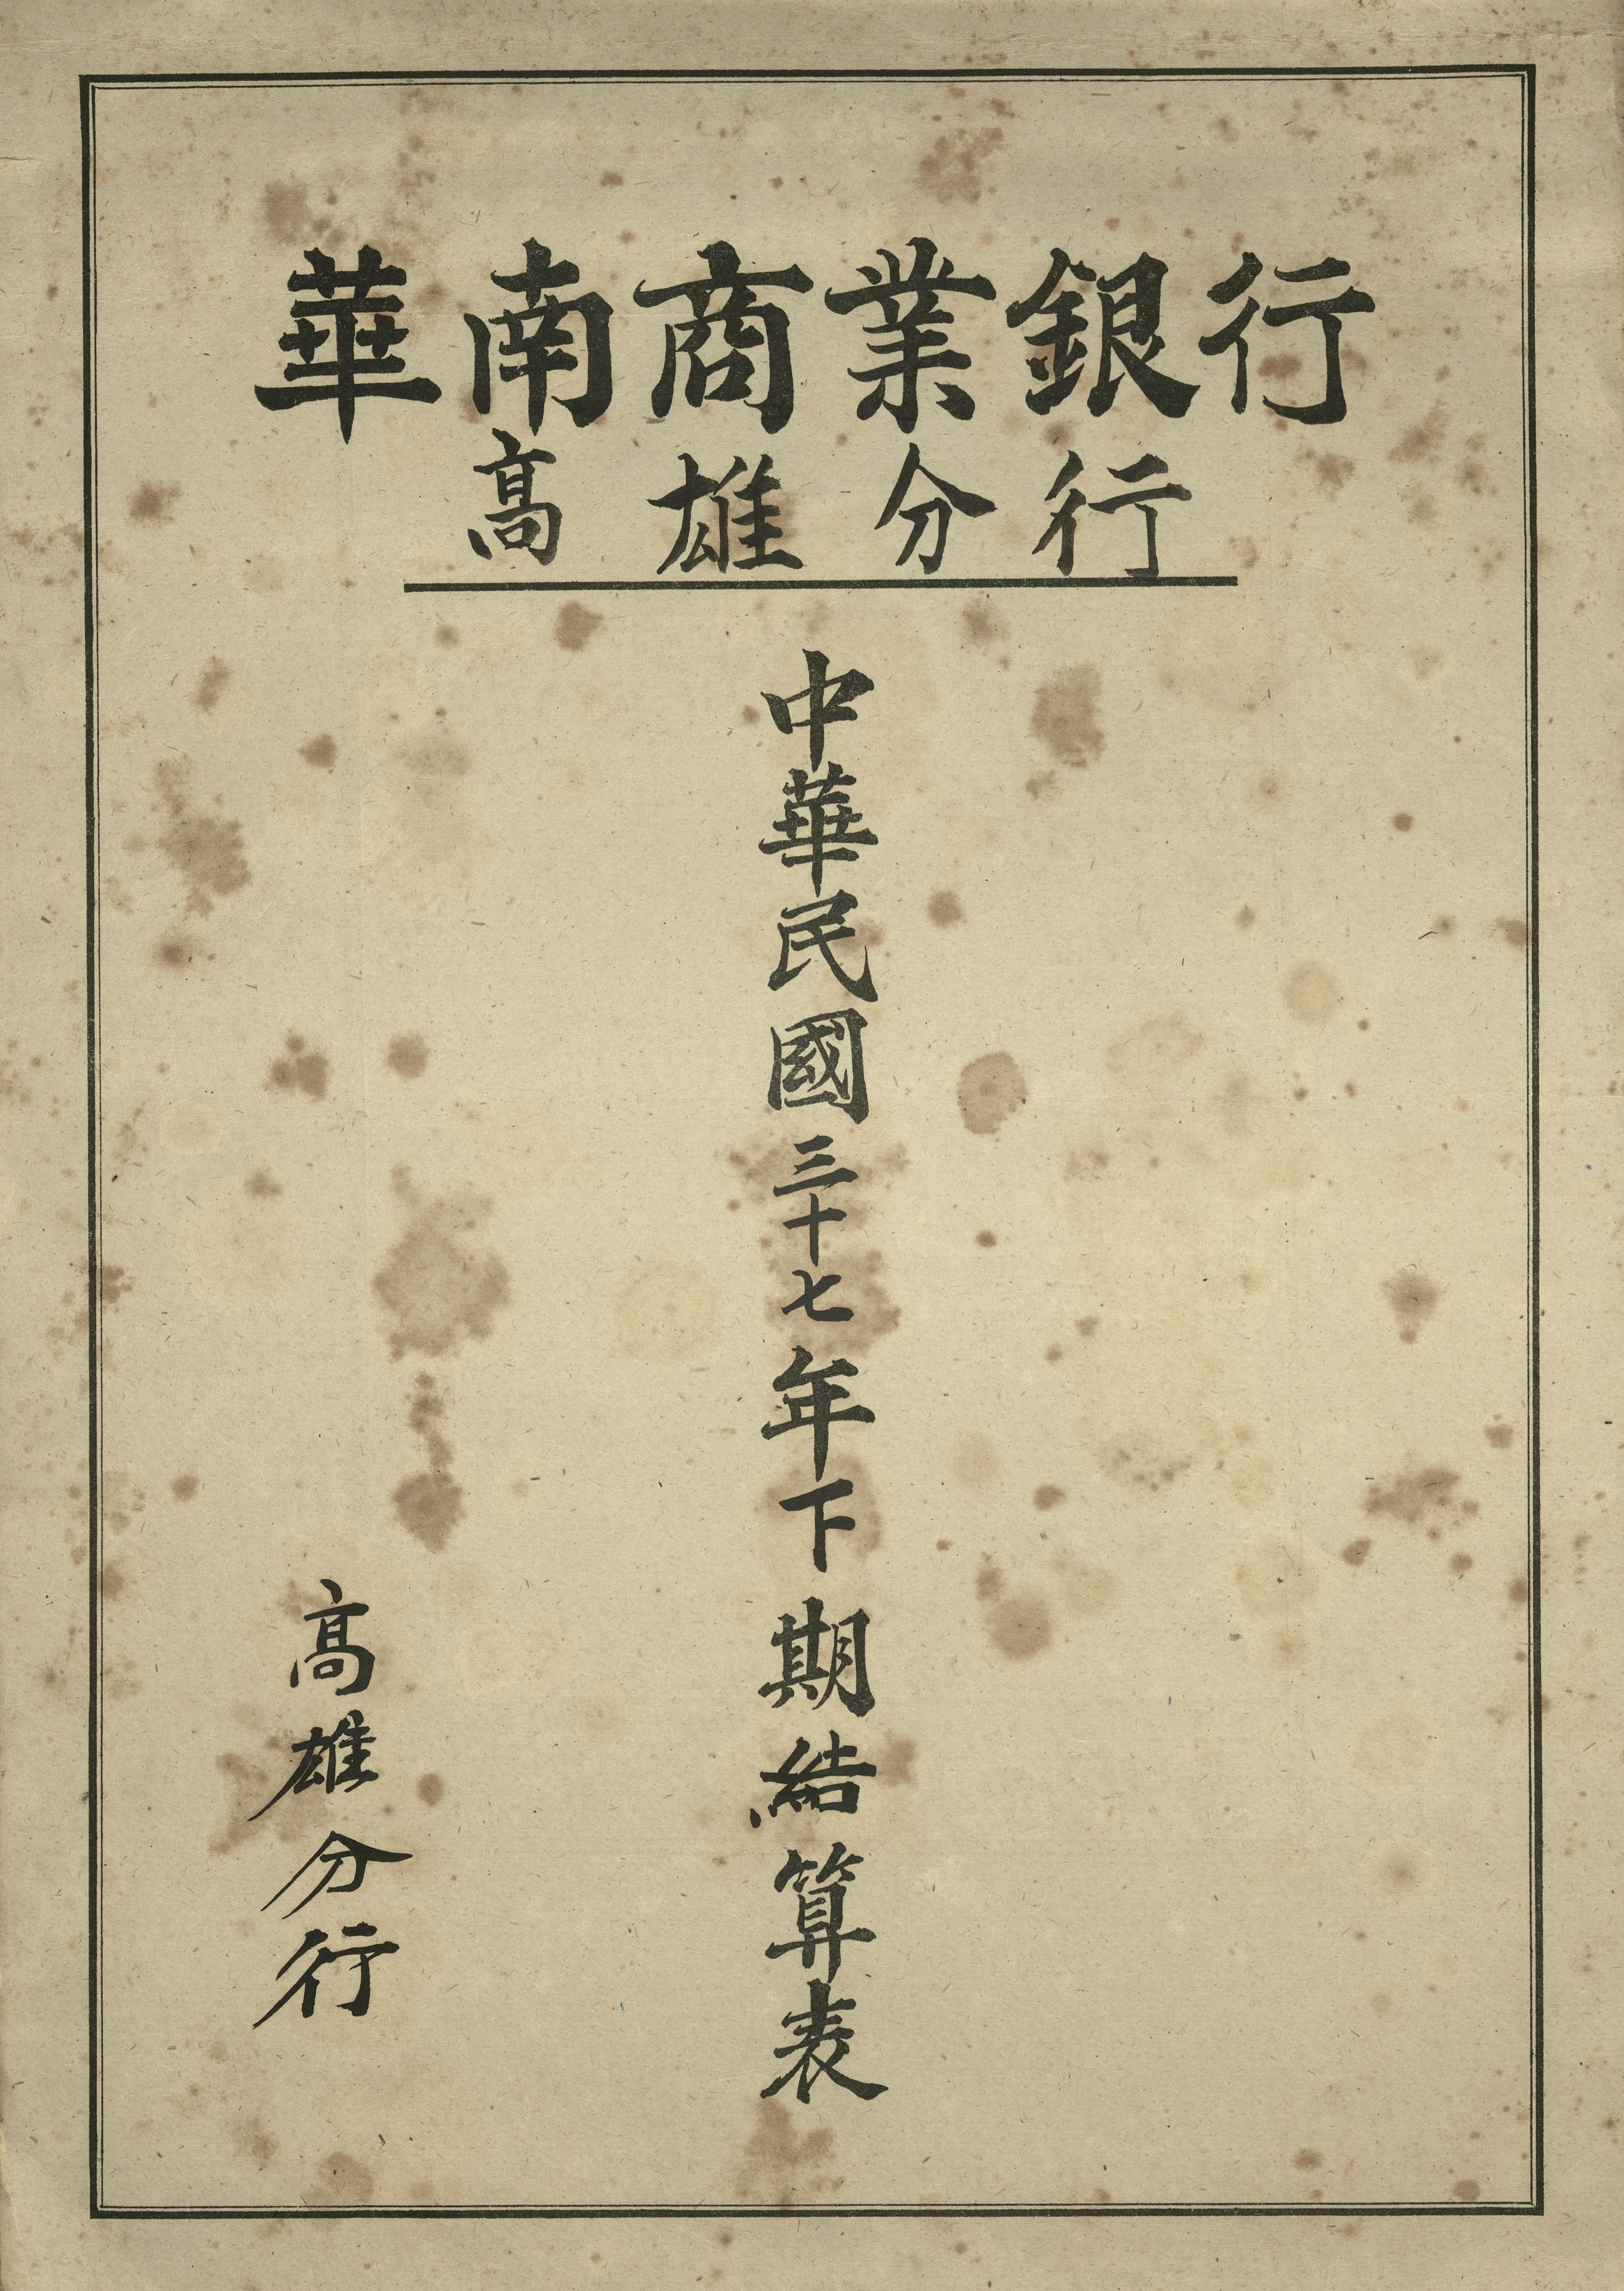 華南商業銀行
高雄分行
中華民國三十七年下期結算表
高雄分行